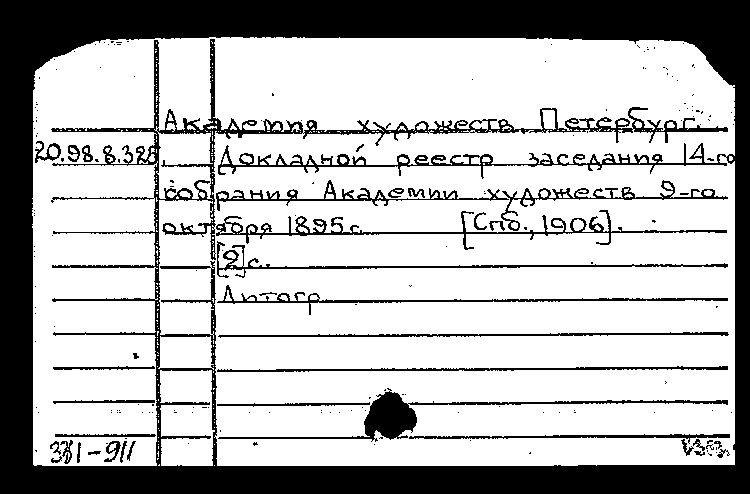 Академия художеств. Петербург.
20.98.8.328. Докладной реестр заседания 14-го
собрания Академии художеств 9-го
октября 1895 г. [Спб., 1906].
[2] с.
Литогр.
381-911